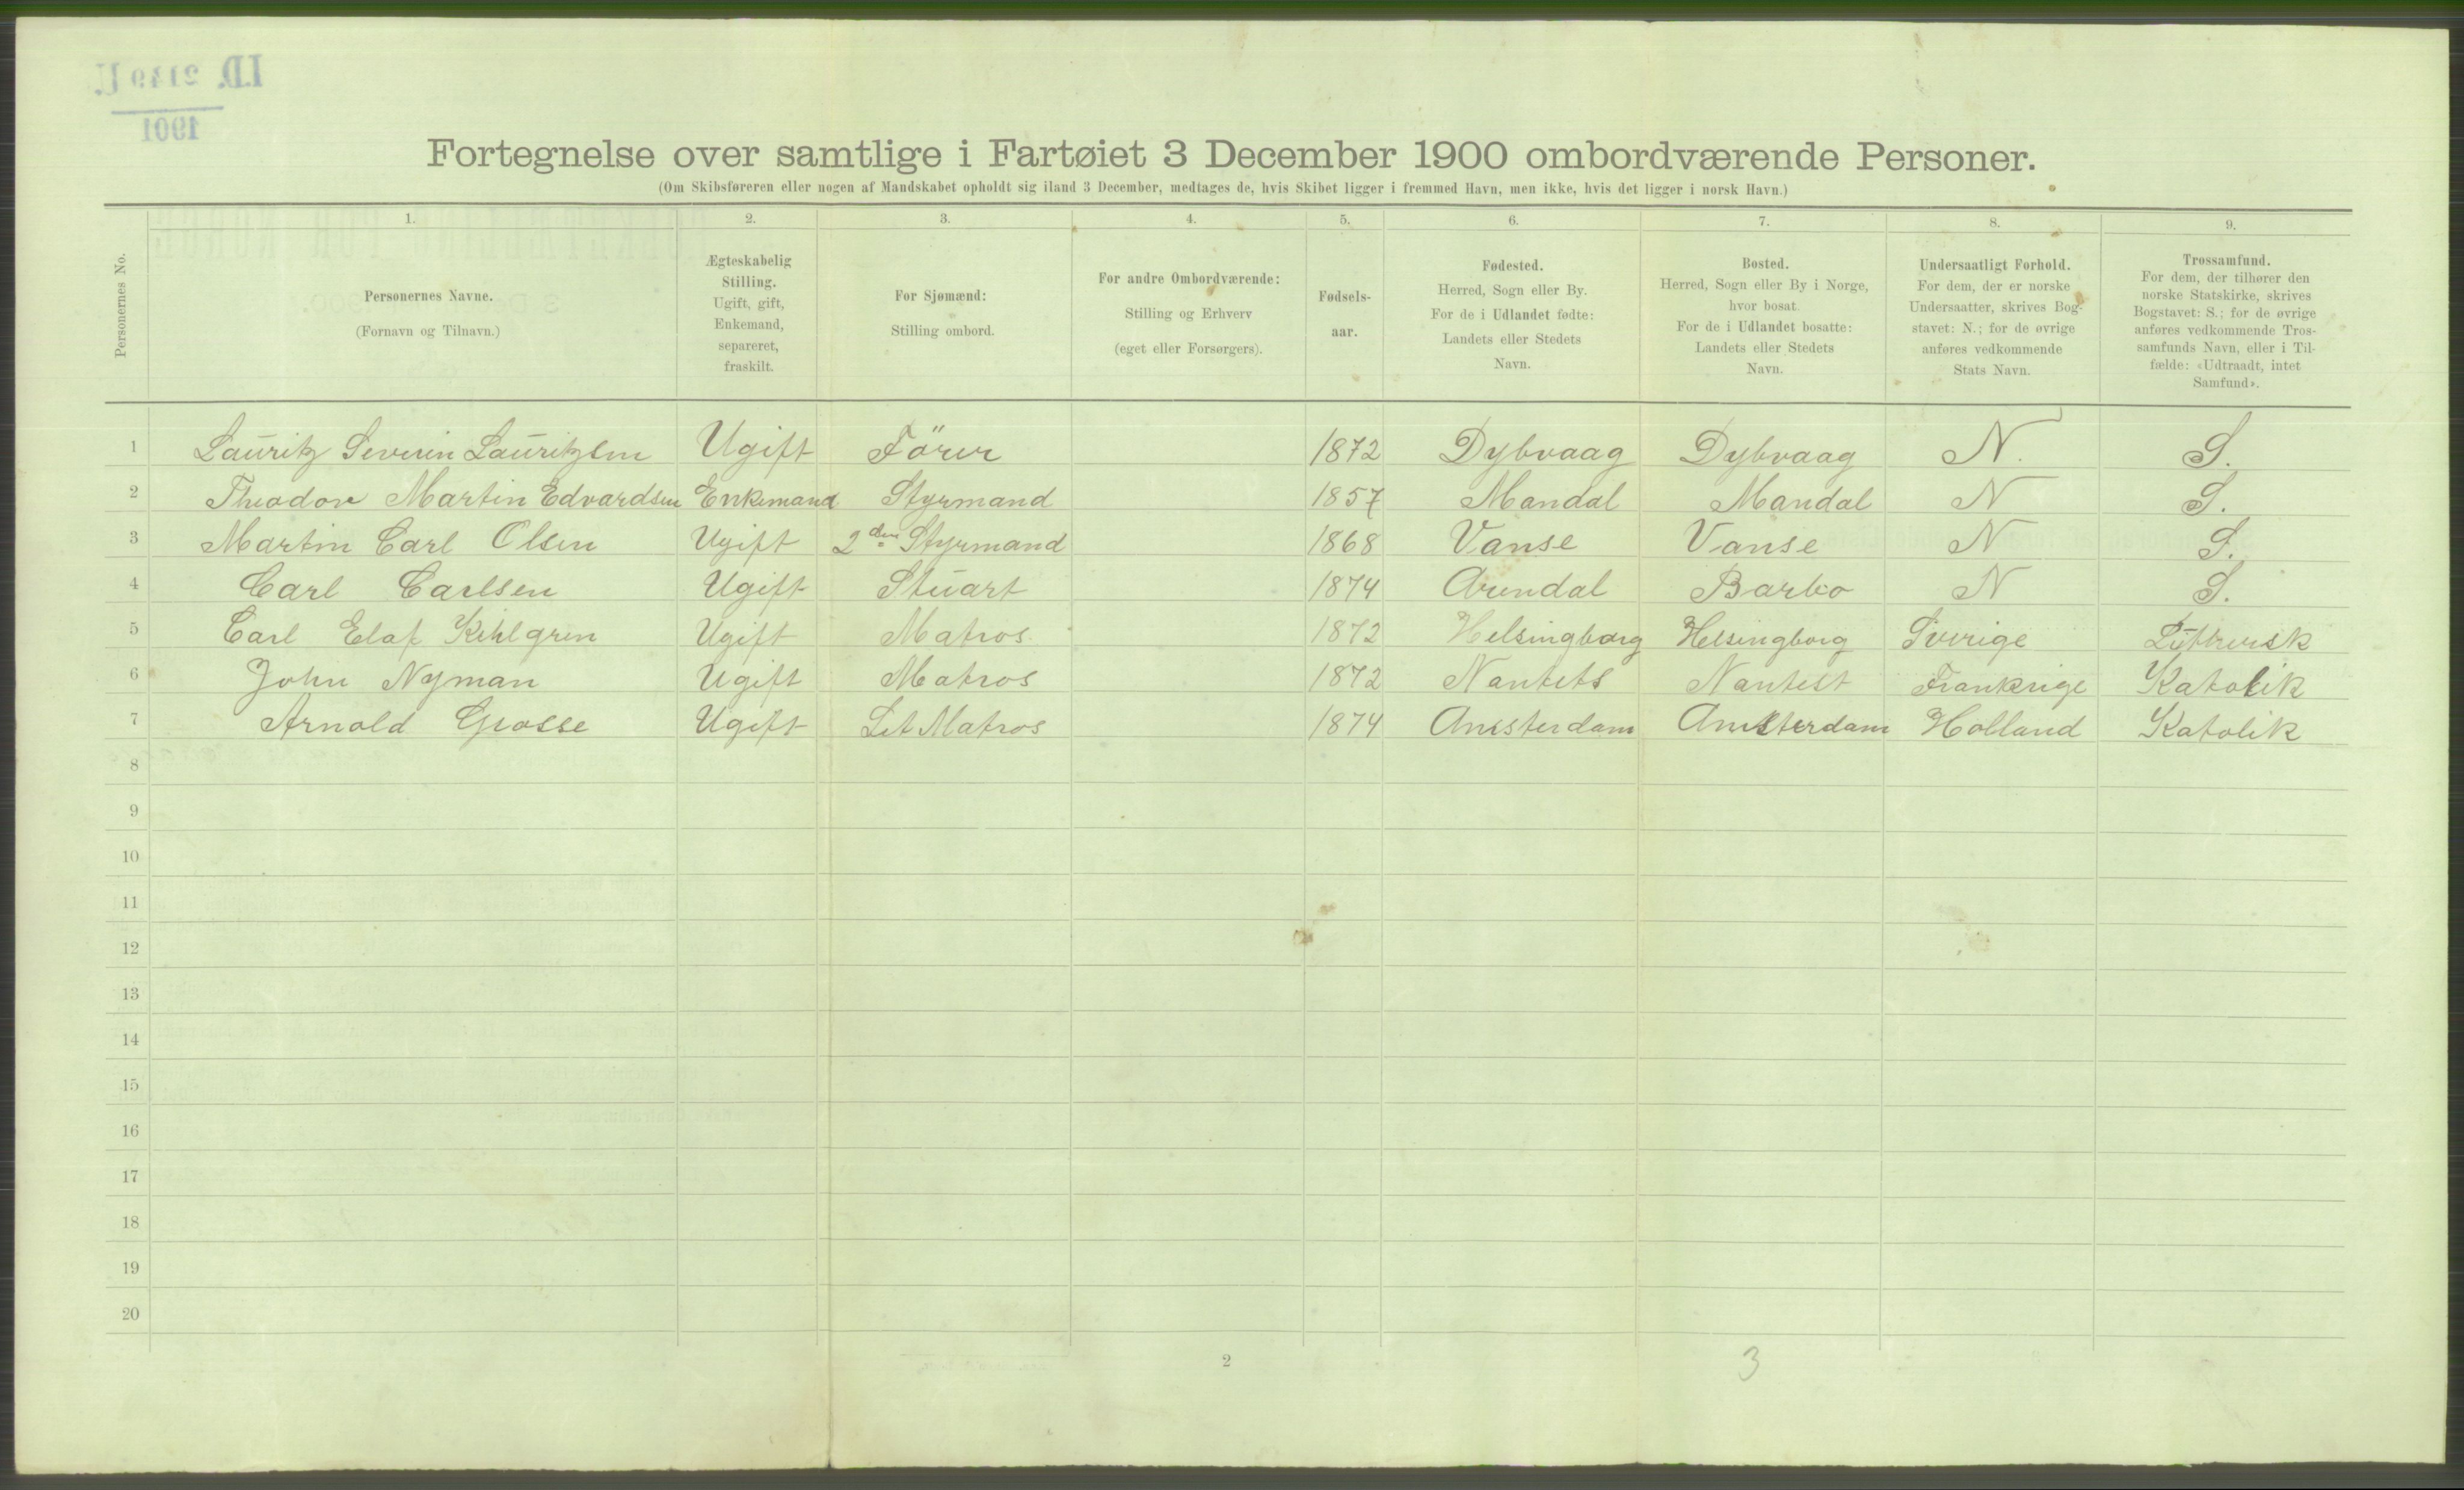 I.D. 2149 U.
1901
Fortegnelse over samtlige i Fartøiet 3 December 1900 ombordværende Personer.
(Om Skibsføreren eller nogen af Mandskabet opholdt sig iland 3 December, medtages de, hvis Skibet ligger i fremmed Havn, men ikke, hvis det ligger i norsk Havn.)
Personernes No.
1.
Personernes Navne.
(Fornavn og Tilnavn.)
2.
Ægteskabelig
Stilling.
Ugift, gift,
Enkemand,
separeret,
fraskilt.
3.
For Sjømænd:
Stilling ombord.
4.
For andre Ombordværende:
Stilling og Erhverv
(eget eller Forsørgers).
5.
Fødsels-
aar.
6.
Fødested.
Herred, Sogn eller By.
For de i Udlandet fødte:
Landets eller Stedets
Navn.
7.
Bosted.
Herred, Sogn eller By i Norge,
hvor bosat.
For de i Udlandet bosatte:
Landets eller Stedets
Navn.
8.
Undersaatligt Forhold.
For dem, der er norske
Undersaatter, skrives Bog-
stavet: N.; for de øvrige
anføres vedkommende
Stats Navn.
9.
Trossamfund.
For dem, der tilhører den
norske Statskirke, skrives
Bogstavet: S.; for de øvrige
anføres vedkommende Tros-
samfunds Navn, eller i Til-
fælde: «Udtraadt, intet
Samfund».
1 Lauritz Severin Lauritzsen Ugift Förer 1872 Dybvaag Dybvaag N. S.
2 Theodor Martin Edvardsen Enkemand Styrmand 1857 Mandal Mandal N S.
3 Martin Carl Olsen Ugift 2den Styrmand 1868 Vanse Vanse N S.
4 Carl Carlsen Ugift Stuart 1874 Arendal Barbo N S.
5 Carl Elof Kihlgren Ugift Matros. 1872 Helsingborg Helsingborg Sverige Luthersk
6 John Nyman Ugift Matros 1872 Nantets Nantest Frankrige Katolik
7 Arnold Grosse Ugift Let Matros 1874 Amsterdam Amsterdam Holland Katolik
8
9
10
11
12
13
14
15
16
17
18
19
20
2
3